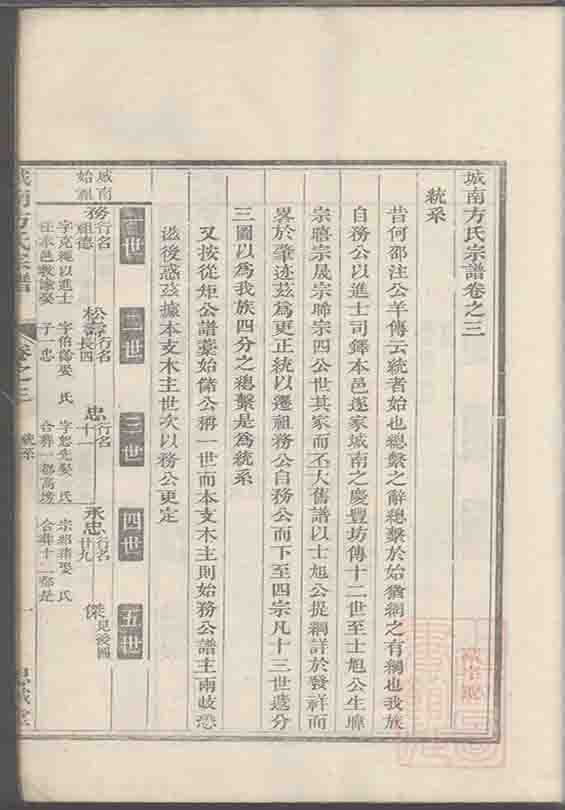 城南方氏宗譜卷之三
統系
昔何邵注公羊傳云統者始也總繫之辭總繫於始猶綱之有綱也我族
自務公以進士司鐸本邑遂家城南之慶豐坊傳十二世至士旭公生聯
宗禧宗晟宗聯宗四公世其家而丕大舊譜以士旭公提綱詳於發祥而
畧於肇迹茲為更正統以遷祖務公自務公而下至四宗凡十三世遞分
三圖以為我族四分之總繫是為統系
又按從矩公譜藁始儲公稱一世而本支木主則始務公譜主兩歧恐
滋後惑茲據本支木主世次以務公更定
一世
二世
三世
四世
五世
城南始祖
務行名祖德
字克繩以進士
任本邑教諭娶
松壽行名長四
字伯齡娶 氏
子一忠
忠行名十一
字恕先娶 氏
合葬一都高塝
永忠行名廿九
宗紹緒娶 氏
合葬十二都是
傑見後圖
城南方氏宗譜
卷之三
統系
一